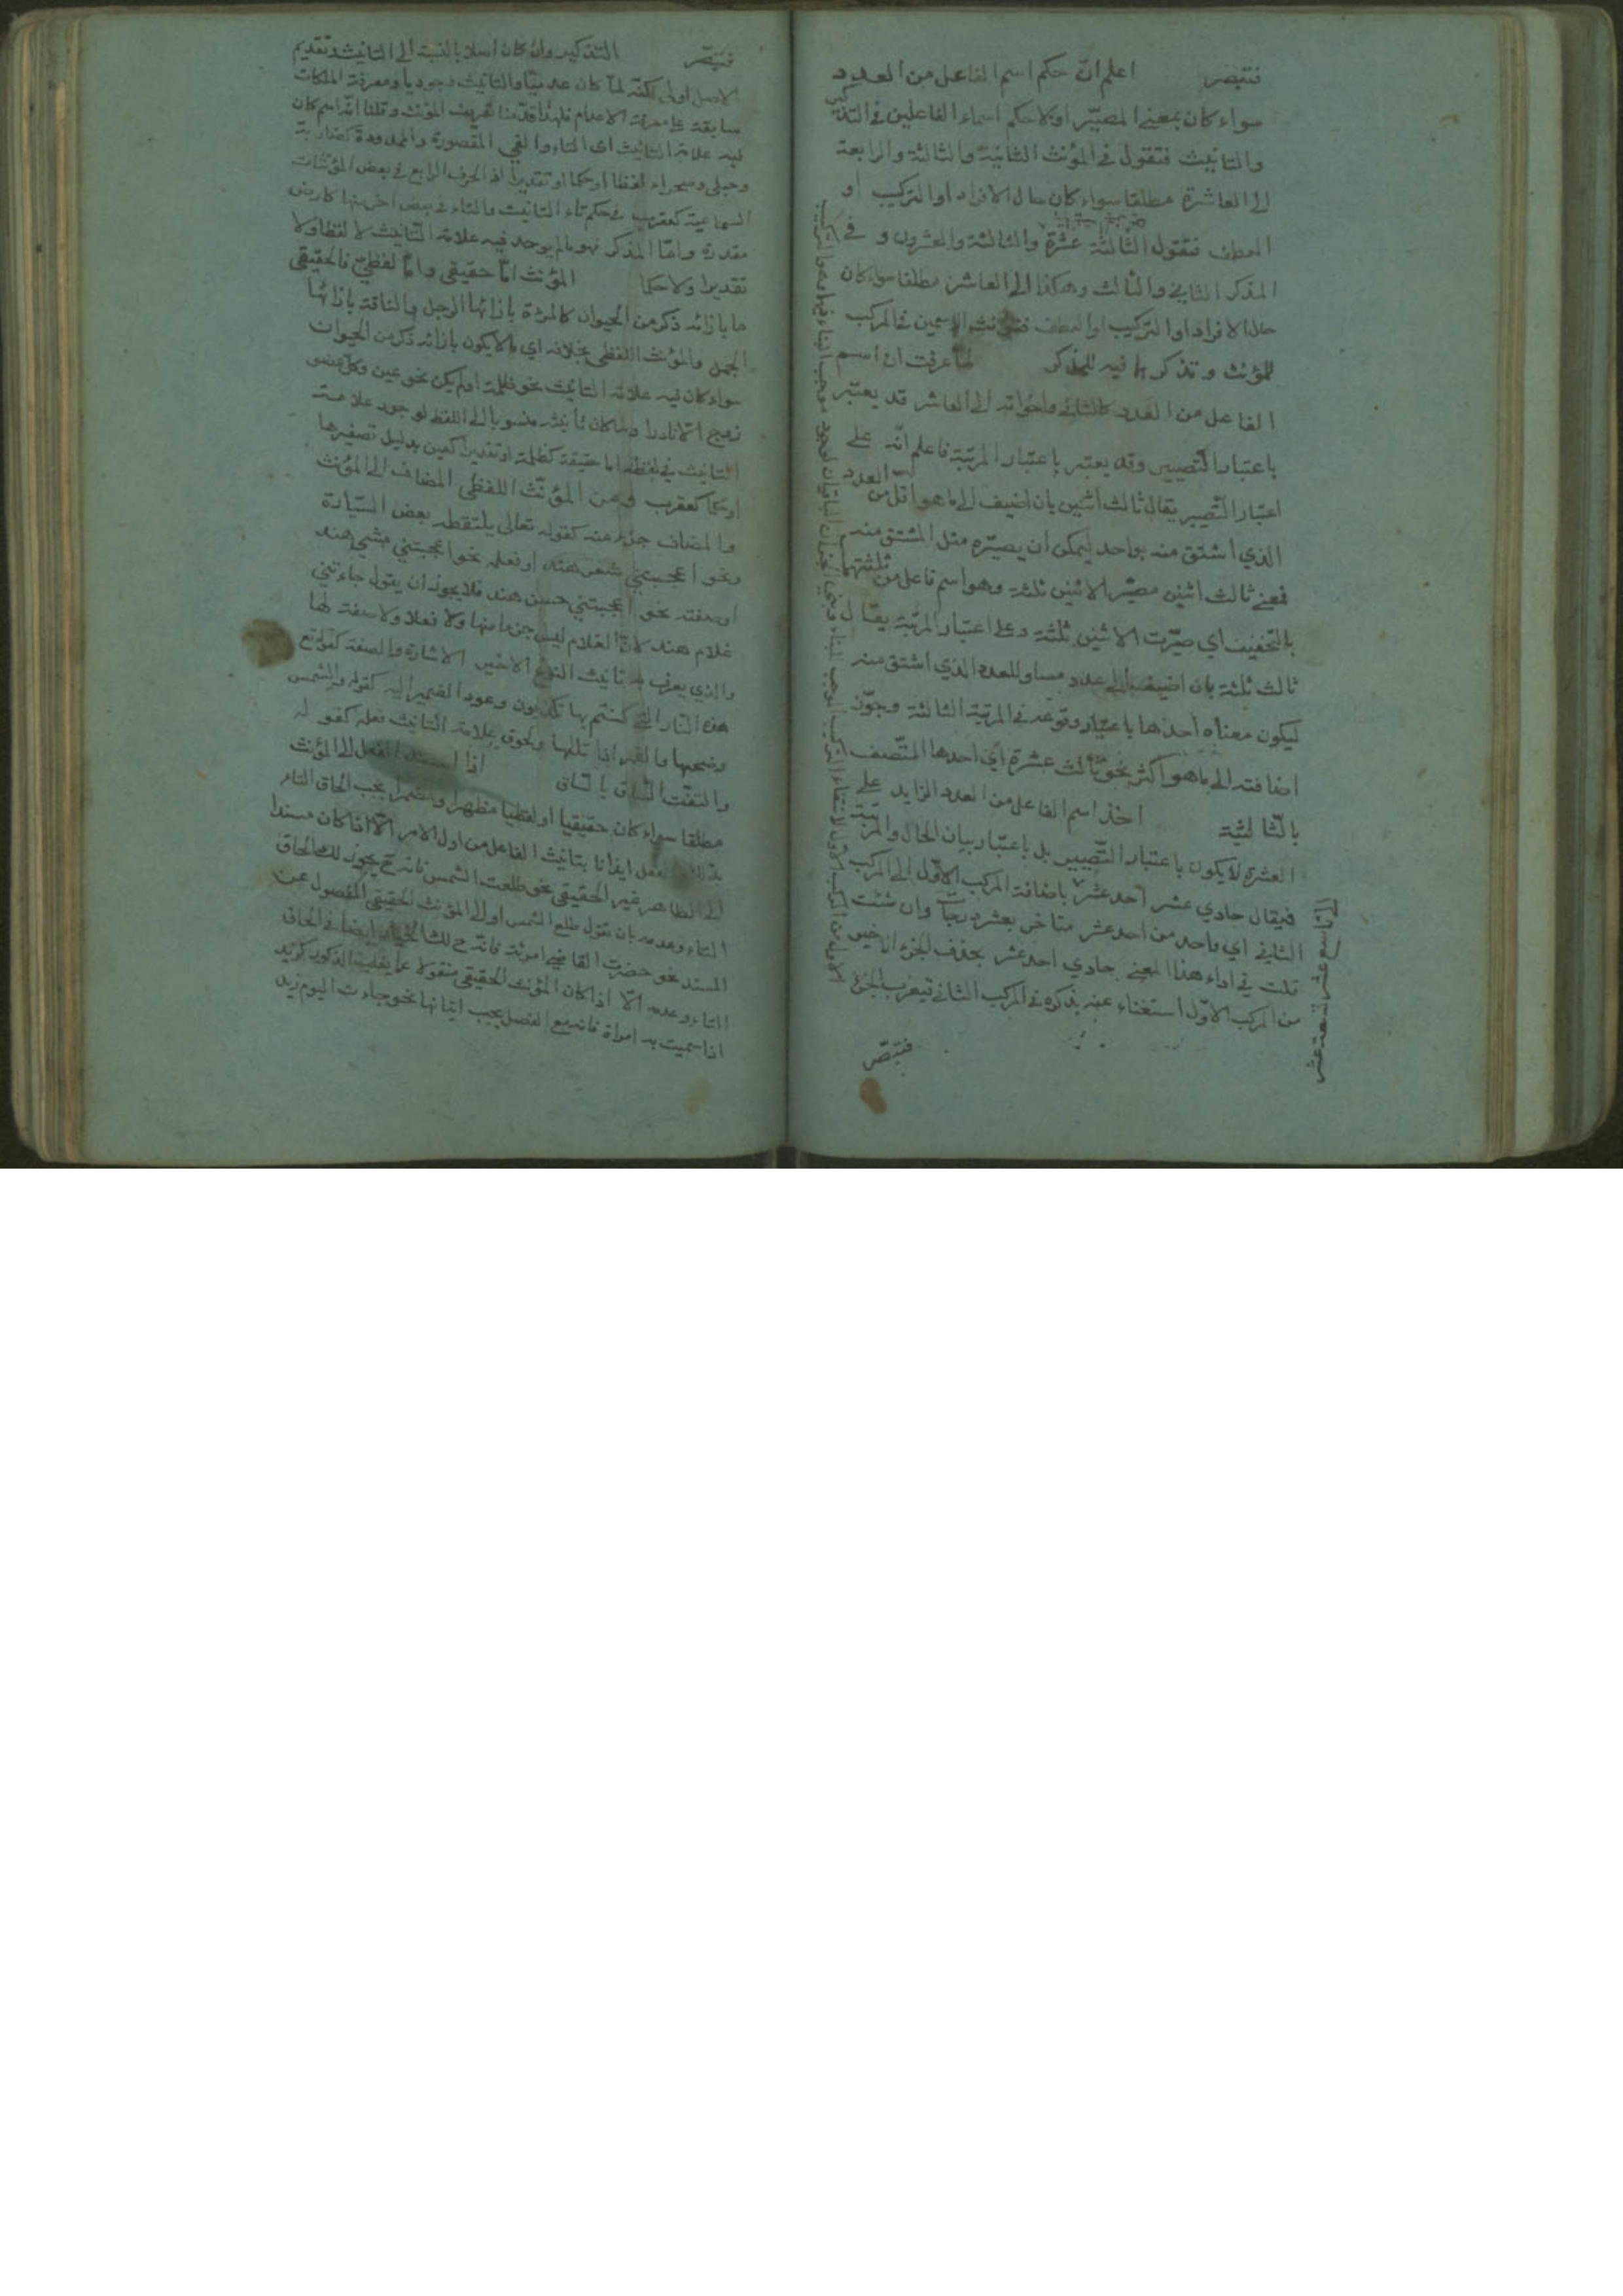 فتبصر اعلم انّ حكم اسم الفاعل من العدد
سواء كان بمعنى المصيّر او لا حكم اسماء الفاعلين في التذكير
والتانيث فتقول في المؤنث الثانية والثالثة والرابعة
الى العاشرة مطلقا سواء كان حال الافراد او التركيب او
العطف فتقول الثالثة عشرة والثالثة والعشرون و في
المذكر الثاني والثالث وهكذا الى العاشر مطلقا سواء كان
حال الافراد او التركيب او العطف الاسمين في المركب
للمؤنث و تذكرهما فيه للمذكر لما عرفت ان اسم
الفاعل من العدد كالثاني واخواته الى العاشر قد يعتبر
باعتبار التصيير وقد يعتبر باعتبار المرتبة فاعلم انّه على
اعتبار التصيير يقال ثالث اثنين بان اضيف الى ما هو اقل من العدد
الذي اشتق منه بواحد ليمكن ان يصيّره مثل المشتق منه
فمعنى ثالث اثنين مصيّر الاثنين ثلثة وهو اسم فاعل من ثلثتهما
بالتخفيف اي صيّرت الاثنين ثلثة وعلى اعتبار المرتبة يقال
ثالث ثلثة بان اضيف الى عدد مساو للعدد الذي اشتق منه
ليكون معناه احدها باعتبار وقوعه في المرتبة الثالثة وجوّز
اضافته الى ما هو اكثر نحو ثالث عشرة اي احدها المتّصف
بالثالثية اخذ اسم الفاعل من العدد الزايد على
العشرة لا يكون باعتبار التّصيير بل باعتبار بيان الحال والمرتبة
فيقال حادي عشر احد عشر باضافة المركب الاوّل الى المركب
الثاني اي واحد من احد عشر متاخر بعشر درجات وان شئت
قلت في اداء هذا المعنى حادي احد عشر بحذف الجزء الاخير
من المركب الاوّل استغناء عنه بذكره في المركب الثاني فيعرب الجزء
فتبصّر
الى تاسع عشر تسعة عشر
فتبصّر التذكير وان كان اصلا بالنسبة الى التانيث وتقديم
الاصل اولى لكنّه لما كان عدميّا والتانيث وجوديا ومعرفة الملكات
سابقة على معرفة الاعدام فلهذا قدّمنا تعريف المؤنث وقلنا انّه اسم كان
فيه علامة التانيث اى التاء والفى المقصورة والممدودة كضاربة
وحبلى وصحراء لفظا او حكما او تقديرا اذ الحرف الرابع في بعض المؤنثات
السماعية كعقرب في حكم تاء التانيث والتاء في بعض اخر منها كارض
مقدرة وامّا المذكر فهو مالم يوجد فيه علامة التانيث لا لفظا ولا
تقديرا ولا حكما المؤنث امّا حقيقي وامّا لفظي فالحقيقي
ما بازائه ذكر من الحيوان كالمرءة بازائها الرجل والناقة بازائها
الجمل والمؤنث اللفظي بخلافه اي ما لا يكون بازائه ذكر من الحيوان
سواء كان فيه علامة التانيث نحو ظلمة او لم يكن نحو عين وكل عضو
زوج الا نادرا ولما كان تأنيثه منسوبا الى اللفظ لوجود علامة
التانيث في لفظه اما حقيقة كظلمة او تقديرا كعين بدليل تصغيرها
او حكما كعقرب ومن المؤنّث اللفظي المضاف الى المؤنث
والمضاف جزء منه كقوله تعالى يلتقطه بعض السّيارة
ونحو اعجبتني شعر هند او فعله نحو اعجبتني مشي هند
او صفته نحو اعجبتني حسن هند فلا يجوز ان يقول جاءتني
غلام هند لانّ الغلام ليس جزءا منها ولا فعلا ولا صفة لها
والذي يعرف به تانيث النوع الاخير الاشارة والصفة كقوله تع
هذه النّار التي كنتم بها تكذبون وعود الضمير اليه كقوله والشمس
وضحيها والقمر اذا تليها ولحوق علامة التانيث فعله كقوله
والتفّت السّاق بالسّاق اذا اسند الفعل الى المؤنث
مطلقا سواء كان حقيقيا او لفظيا مظهرا او مضمرا يجب الحاق التاء
بذلك الفعل ايذانا بتانيث الفاعل من اول الامر الّا اذا كان مسندا
الى الظاهر غير الحقيقي نحو طلعت الشمس فانه ح يجوز لك الحاق
التاء وعدمه بان تقول طلع الشمس او الى المؤنث الحقيقي المفصول عن
المسند نحو حضرت القاضي امرئة فانّه ح لك الخيار ايضا في الحاق
التاء وعدمه الّا اذا كان المؤنث الحقيقي منقولا عما يغلب الذكور كزيد
اذا سميت به امرأة فانه مع الفصل يجب اتيانها نحو جاءت اليوم زيد